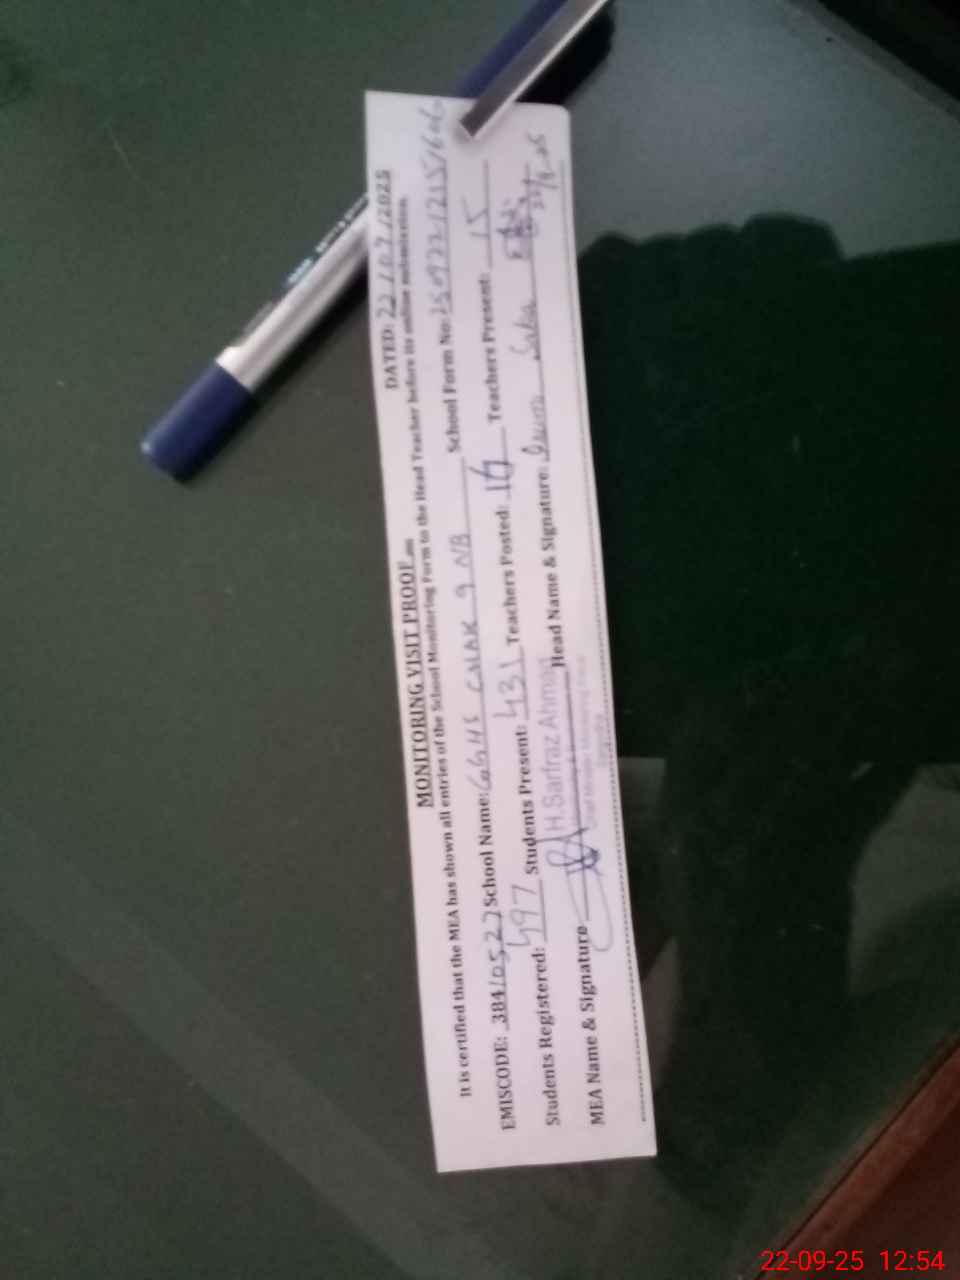 DATED: 22/09/2025
MONITORING VISIT PROOF
It is certified that the MEA has shown all entries of the School Monitoring Form to the Head Teacher before its online submission.
EMISCODE: 38410527 School Name: GGHS CHAK 9 NB School Form No: 250922121516
Students Registered: 497 Students Present: 431 Teachers Posted: 16 Teachers Present: 15
MEA Name & Signature Head Name & Signature:
H.Sarfraz Ahmad
22-09-25 12:54